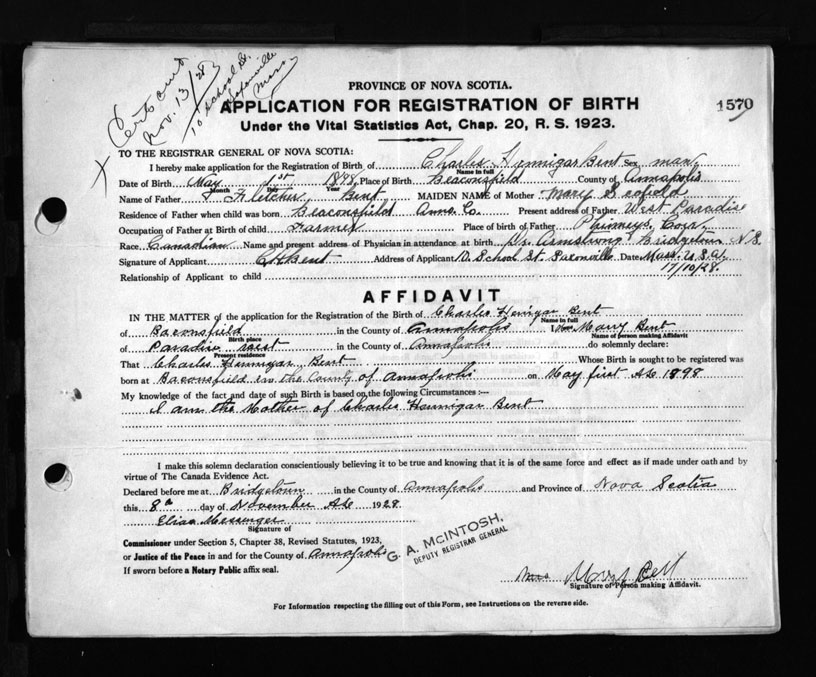 Certs sent
Nov. 13/28
10 School St.
Saxonville
Mass.
PROVINCE OF NOVA SCOTIA.
APPLICATION FOR REGISTRATION OF BIRTH
1570
Under the Vital Statistics Act, Chap. 20, R. S. 1923.
TO THE REGISTRAR GENERAL OF NOVA SCOTIA:
I hereby make application for the Registration of Birth of Charles Hennigar Bent Sex man
Name in full
Date of Birth May 1st 1898 Place of Birth Beaconsfield County of Annapolis
Month Day Year
Name of Father J Fletcher Bent MAIDEN NAME of Mother Mary
Residence of Father when child was born Beaconsfield Anna. Co. Present address of Father West Paradise
Occupation of Father at Birth of child Farmer Place of birth of Father Phinneys Cove
Race Canadian Name and present address of Physician in attendance at birth Dr. Armstrong Bridgetown N.S.
Signature of Applicant C H Bent Address of Applicant 10 School St. Saxonville Date Mass. U.S.A.
17/10/28.
Relationship of Applicant to child
AFFIDAVIT
IN THE MATTER of the application for the Registration of the Birth of Charles Hennigar Bent
Name in full
of Baconsfield in the County of Annapolis I, Mrs Mary Bent
Birth place Name of person making Affidavit
of Paradise West in the County of Annapolis do solemnly declare:
Present residence
That Charles Hennigar Bent Whose Birth is sought to be registered was
born at Baconsfield in the County of Annapolis on May first AD 1898
My knowledge of the fact and date of such Birth is based on the following Circumstances :—
I am the Mother of Charles Hennigar Bent
I make this solemn declaration conscientiously believing it to be true and knowing that it is of the same force and effect as if made under oath and by
virtue of The Canada Evidence Act.
Declared before me at Bridgetown in the County of Annapolis and Province of Nova Scotia
this 8th day of November AD 1928
Elias Messenger
Signature of
Commissioner under Section 5, Chapter 38, Revised Statutes, 1923,
or Justice of the Peace in and for the County of Annapolis
If sworn before a Notary Public affix seal.
G. A. McINTOSH,
DEPUTY REGISTRAR GENERAL
Mrs Mary Bent
Signature of Person making Affidavit.
For Information respecting the filling out of this Form, see Instructions on the reverse side.